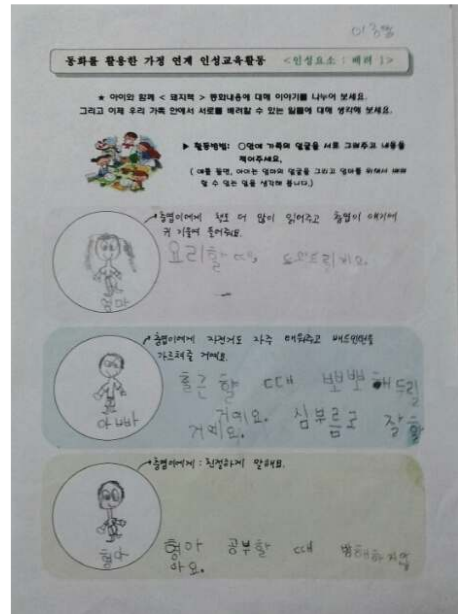 동화를 활용한 가정 연계 인성교육활동 <인성요소 : 배려 1>
★ 아이와 함께 < 돼지책 > 동화내용에 대해 이야기를 나누어 보세요.
그리고 이제 우리 가족 안에서 서로를 배려할 수 있는 일들에 대해 생각해 보세요.
▶ 활동방법: ○안에 가족의 얼굴을 서로 그려주고 내용을
적어주세요.
( 예를 들면, 아이는 엄마의 얼굴을 그리고 엄마를 위해서 배려
할 수 있는 일을 생각해 봅니다.)
책도 더 많이 읽어주고 얘기에
귀 기울여 들어줘요.
요리할 때, 도와드리지요.
엄마
자전거도 자주 태워주고 배드민턴을
가르쳐줄 거예요.
출근 할 때 뽀뽀 해드릴
거예요. 심부름도 잘 할
거예요.
아빠
친절하게 말해요.
형아 공부할 때 방해하지않
아요.
형아